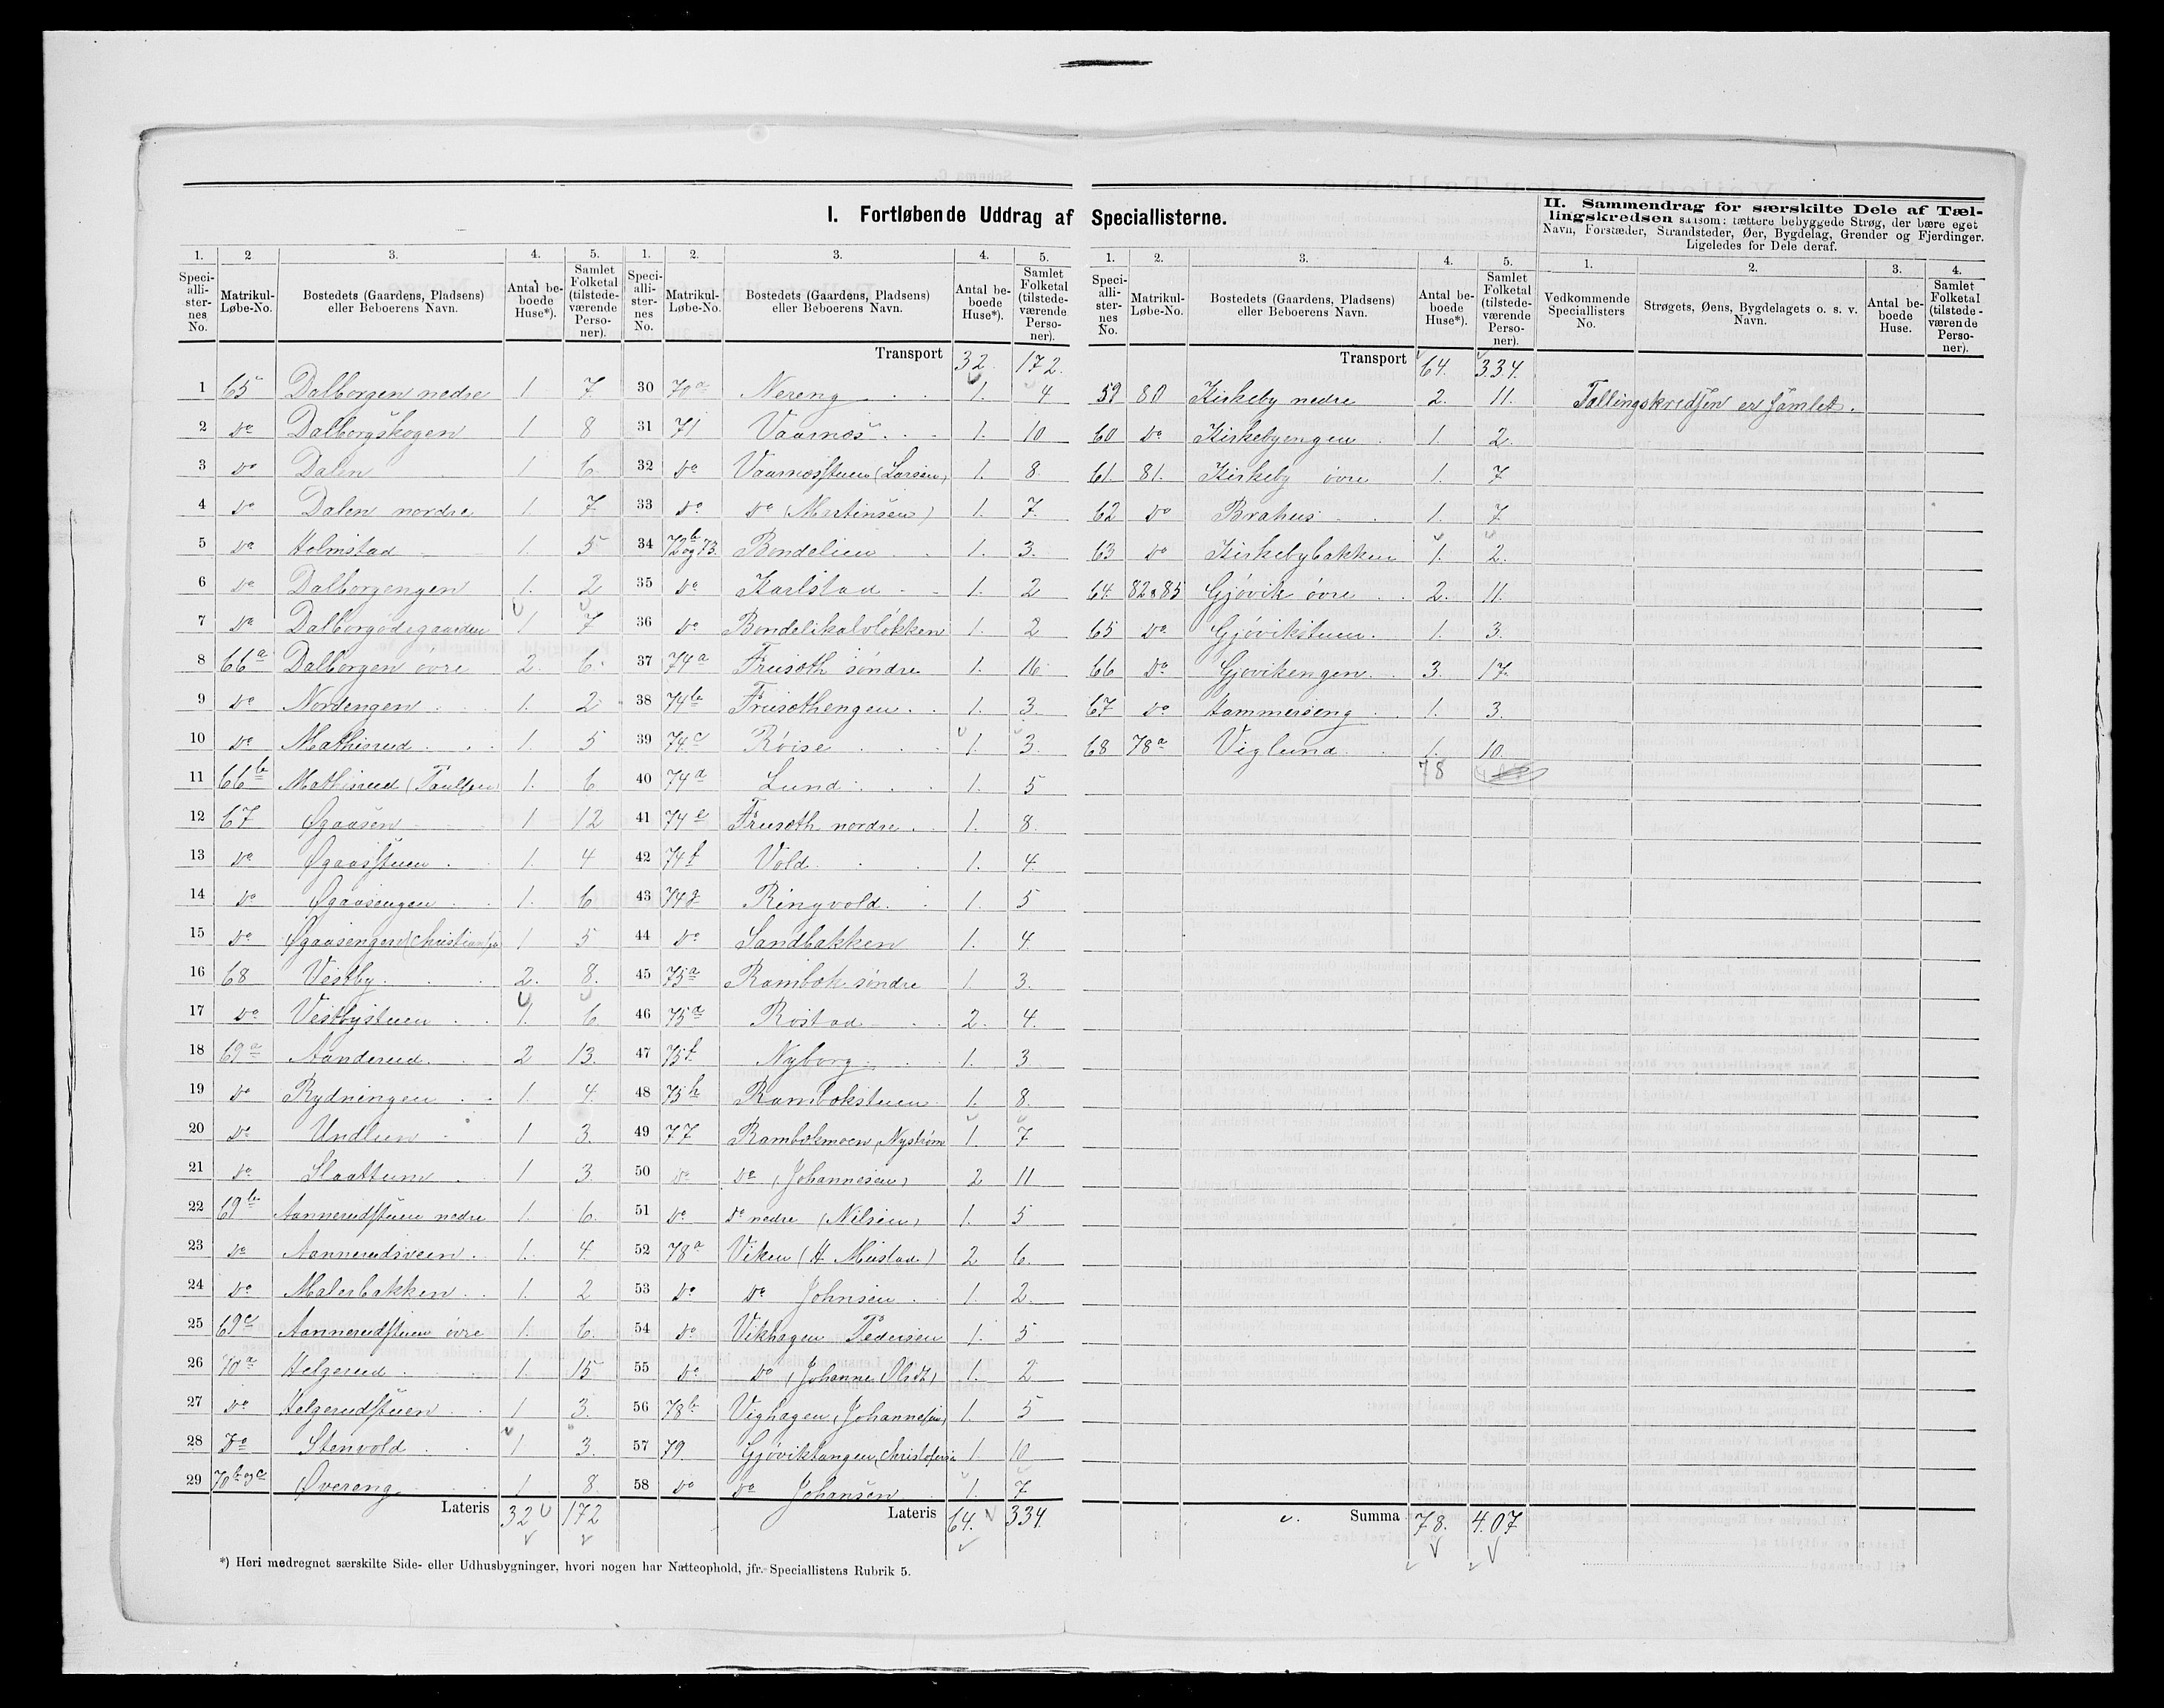 I. Fortløbende Uddrag af Speciallisterne.
II. Sammendrag for særskilte Dele af Tællingskredsen saasom: tættere bebyggede Strøg, der bære eget Navn, Forstæder, Strandsteder, Øer, Bygdelag, Grender og Fjerdinger. Ligeledes for Dele deraf.
1. 2 3. 4. 5. 1. 2. 3. 4. 5. 1. 2. 3. 4. 5. 1. 2. 3. 4.
Speciallisternes No. Matrikul-Løbe-No. Bostedets (Gaardens, Pladsens) eller Beboerens Navn. Antal beboede Huse*). Samlet Folketal (tilstedeværende Personer).
Speciallisternes No. Matrikul-Løbe-No. Bostedets (Gaardens, Pladsens) eller Beboerens Navn. Antal beboede Huse*). Samlet Folketal (tilstedeværende Personer).
Speciallisternes No. Matrikul-Løbe-No. Bostedets (Gaardens, Pladsens) eller Beboerens Navn. Antal beboede Huse*). Samlet Folketal (tilstedeværende Personer).
Vedkommende Speciallisters No. Strøgets, Øens, Bygdelagets o. s. v. Navn. Antal beboede Huse. Samlet Folketal (tilstedeværende Personer).
1 65 Dalborgen nedre 1 7
2 do Dalborgskogen 1 8
3 do Dalen 1 6
4 do Dalen nordre 1 7
5 do Holmstad 1. 5
6 do Dalborgengen 1. 2
7 do Dalborgødegaarden 1 7
8 66a Dalborgen övre 2. 6.
9 do Nordengen 1. 2
10 do Mathisrud 1. 5
11 66b Mathisrud (Paulsen) 1. 6
12 67 Øgaasen 1 12
13 do Øgaasstuen 1. 4
14 do Øgaasengen 1. 6
15 do Øgaasengen (Christiansen) 1 5
16 68 Vestby 2. 8.
17 do Vestbystuen 1. 6
18 69a Aanderud 2 13.
19 do Rydningen 1. 4.
20 do Undlien 1 3.
21 do Slaattum 1 3.
22 69b Aannerudstuen nedre 1. 6.
23 do Aannerudsveen 1. 4.
24 do Malerbakken 1. 2
25 69c Aannerudstuen övre 1. 6.
26 70a Helgerud 1. 15
27 do Helgerudstuen 1 3.
28 Do Stenvold 1 3.
29 70b og c Øvereng 1 8.
Lateris 32 172
Transport 32. 172.
30 70a Nereng 1. 4
31 71 Vaarnæs 1. 10
32 do Vaarnæsstuen (Larsen) 1. 8.
33 do do (Martinsen) 1. 7.
34 72b og 73. Bondelien 1. 3.
35 do Karlstad 1. 2
36 do Bondelikalvløkken 1. 2
37 74a Fruseth söndre 1. 16
38 74b Frusethengen 1. 3.
39 74c Röise 1. 3.
40 74d Lund 1. 5
41 74e Fruseth nordre 1. 8.
42 74f Vold 1. 4.
43 74g Ringvold 1. 5
44 do Sandbakken 1. 4.
45 75a Rambæk söndre 1. 3.
46 75d Rostad 2. 4.
47 75f Nyborg 1. 3
48 75h Rambækstuen 1. 8.
49 77 Rambekmoen, Nyström 1. 7
50 do do (Johannesen) 2 11
51 do do nedre (Nilsen) 1. 5
52 78a Viken (H Mustad) 2 6.
53 do do Johnsen 1. 2.
54 do Vikhagen Pedersen 1. 5
55 do do (Johanne Olsdt) 1. 2
56 78b Vighagen (Johannesen) 1. 5
57 79 Gjøviktangen, Christofersen 1 10
58 do do Johansen 1. 7
Lateris 64. 334.
Transport 64. 334.
59 80 Kirkeby nedre 2. 11.
60 do Kirkebyengen 1. 2.
61. 81. Kirkeby övre 1. 7
62 do Brahus 1. 7.
63 do Kirkebybakken 1. 2.
64. 82 a 85 Gjövik övre 2. 11.
65 do Gjövikstuen 1. 3.
66 do Gjøvikengen 3. 17.
67 do Hammerseng 1. 3.
68 78a Viglund 1. 10.
78
Summa 78. 407
Tællingskredsen er samlet.
*) Heri medregnet særskilte Side- eller Udhusbygninger, hvori nogen har Natteophold, jfr. Speciallistens Rubrik 5.